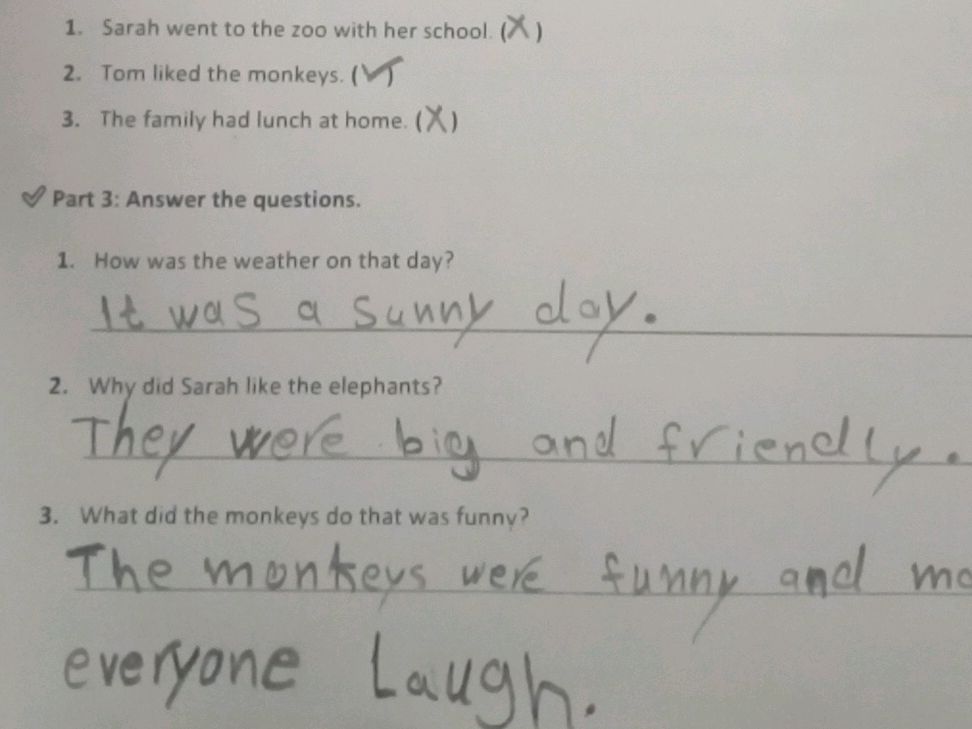 1. Sarah went to the zoo with her school. (X)
2. Tom liked the monkeys. (✓)
3. The family had lunch at home. (X)
✓ Part 3: Answer the questions.
1. How was the weather on that day?
It was a sunny day.
2. Why did Sarah like the elephants?
They were big and friendly.
3. What did the monkeys do that was funny?
The monkeys were funny and
everyone Laugh.